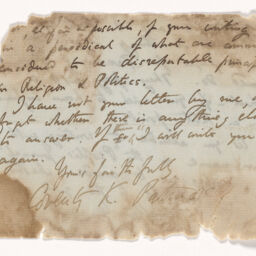 if possible, of your writing
in a periodical of what are
considered to be disreputable
in Religion & Politics.
I have not your letter by me, &
forget whether there is anything else
to answer. If so, I will write you
again.
Yours faithfully
Coventry K. Patmore